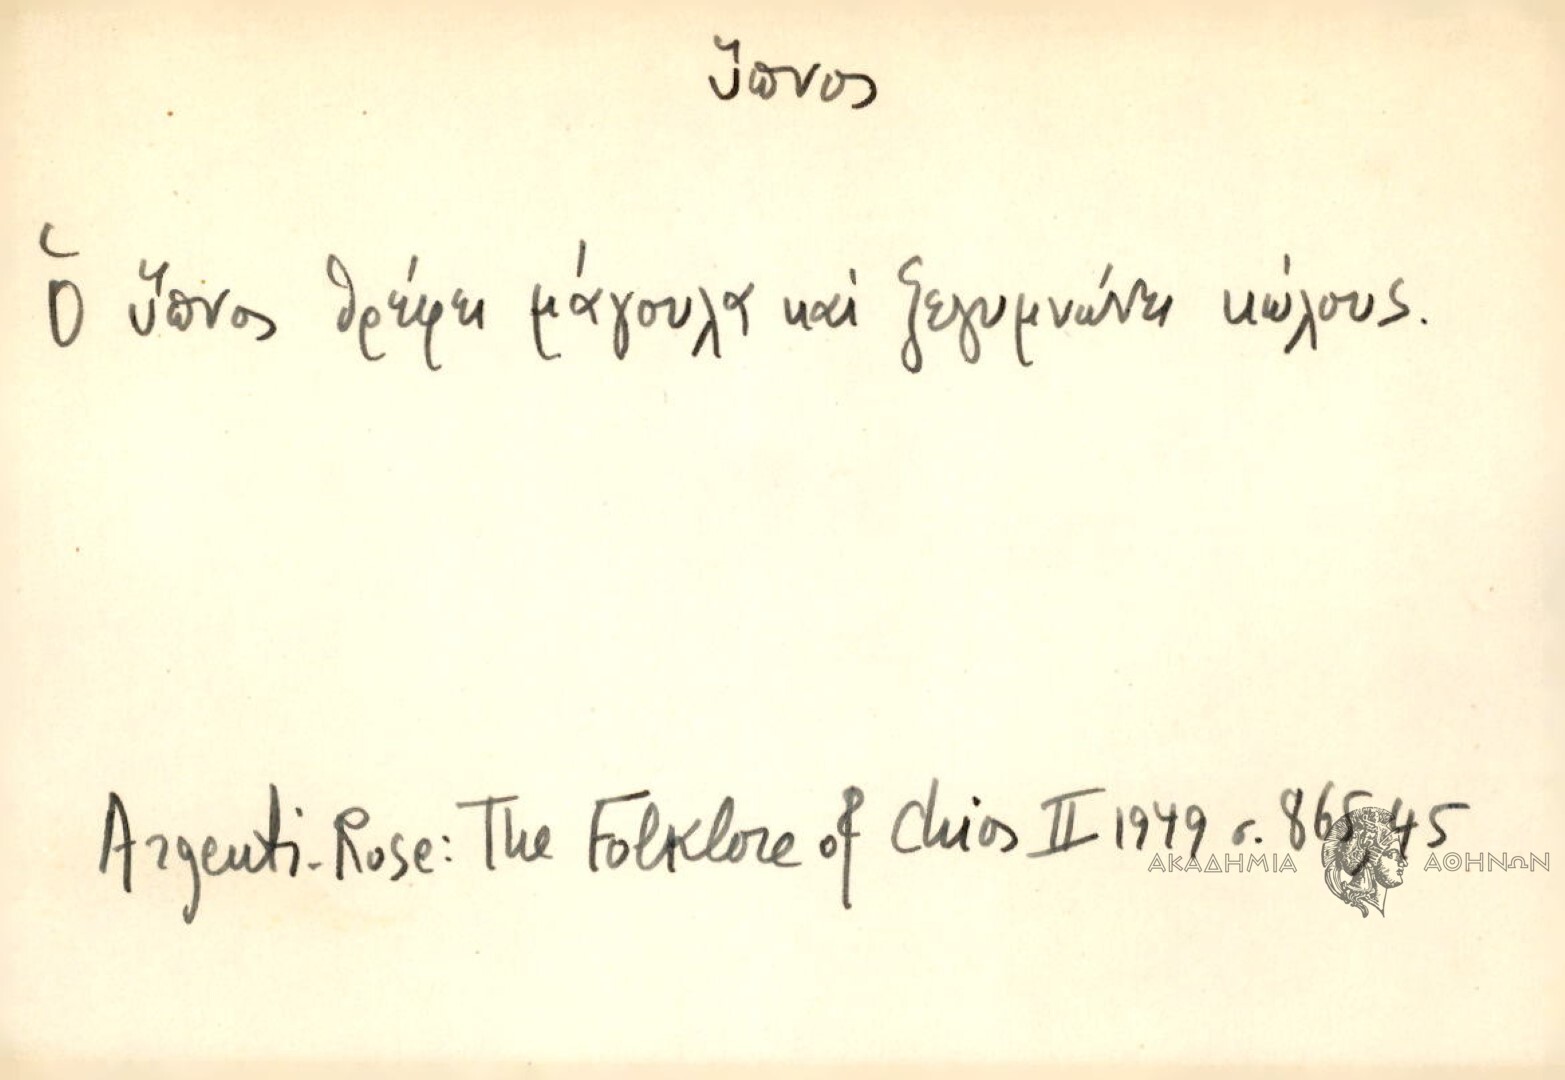 ὕπνος
Ὁ ὕπνος θρέφει μάγουλα καὶ ξεγυμνώνει κώλους.
Argenti-Rose: The Folklore of Chios II 1949 σ. 865,45
ΑΚΑΔΗΜΙΑ ΑΘΗΝΩΝ